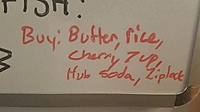 FISH!
Buy: Butter, rice,
cherry 7 up,
Hub soda, Ziplock